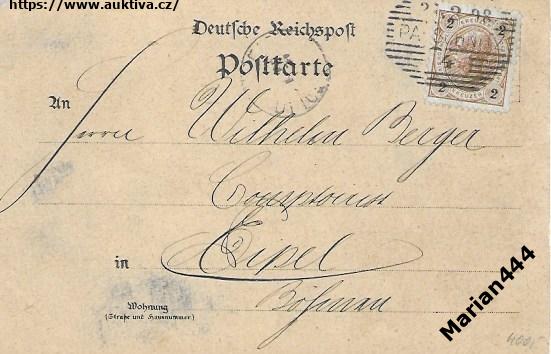 https://www.auktiva.cz/
Deutsche Reichspost
Postkarte
2 2
2 2
KREUZER
An
Herrn Wilhelm Berger
Comptoirist
in Eipel
Böhmen
Wohnung
(Straße und Hausnummer)
Marian444
400,-